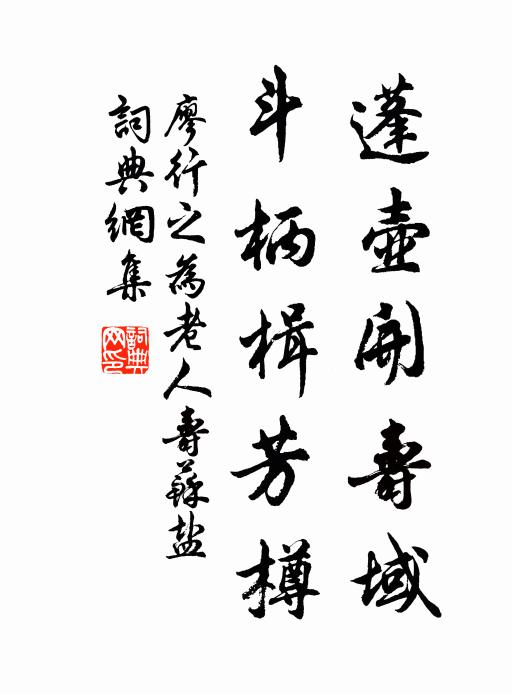 蓬壺開壽域
斗柄楫芳樽
廖行之為老人壽蘇盐
詞典網集
詞典网印